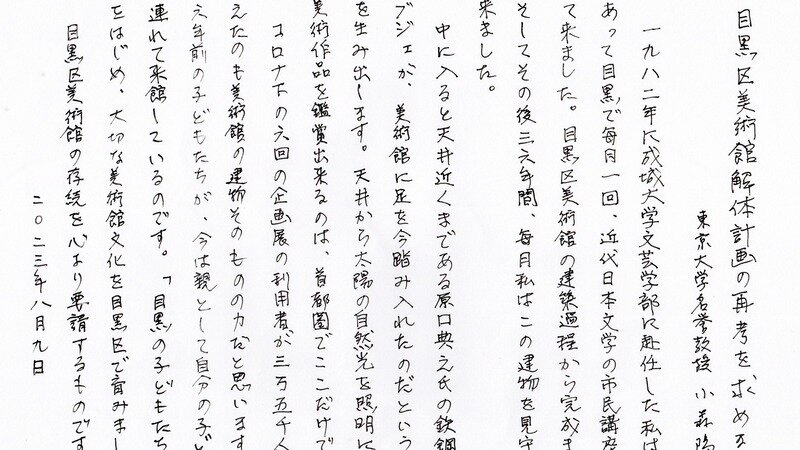 目黒区美術館解体計画の再考を求める
東京大学名誉教授 小森陽
一九八二年に成城大学文芸学部に赴任した私は
あって目黒で毎月一回、近代日本文学の市民講座
て来ました。目黒区美術館の建築過程から完成ま
そしてその後三六年間、毎月私はこの建物を見守
来ました。
中に入ると天井近くまである原口典之氏の鉄鋼
ブジェが、美術館に足を今踏み入れたのだという
を生み出します。天井から太陽の自然光を照明に
美術作品を鑑賞出来るのは、首都圏でここだけで
コロナ下の六回の企画展の利用者が三万五千人
えたのも美術館の建物そのものの力だと思います
六年前の子どもたちが、今は親として自分の子ど
連れて来館しているのです。「目黒の子どもたち
をはじめ、大切な美術館文化を目黒区で育みまし
目黒区美術館の存続を心より要請するものです
二〇二三年八月九日